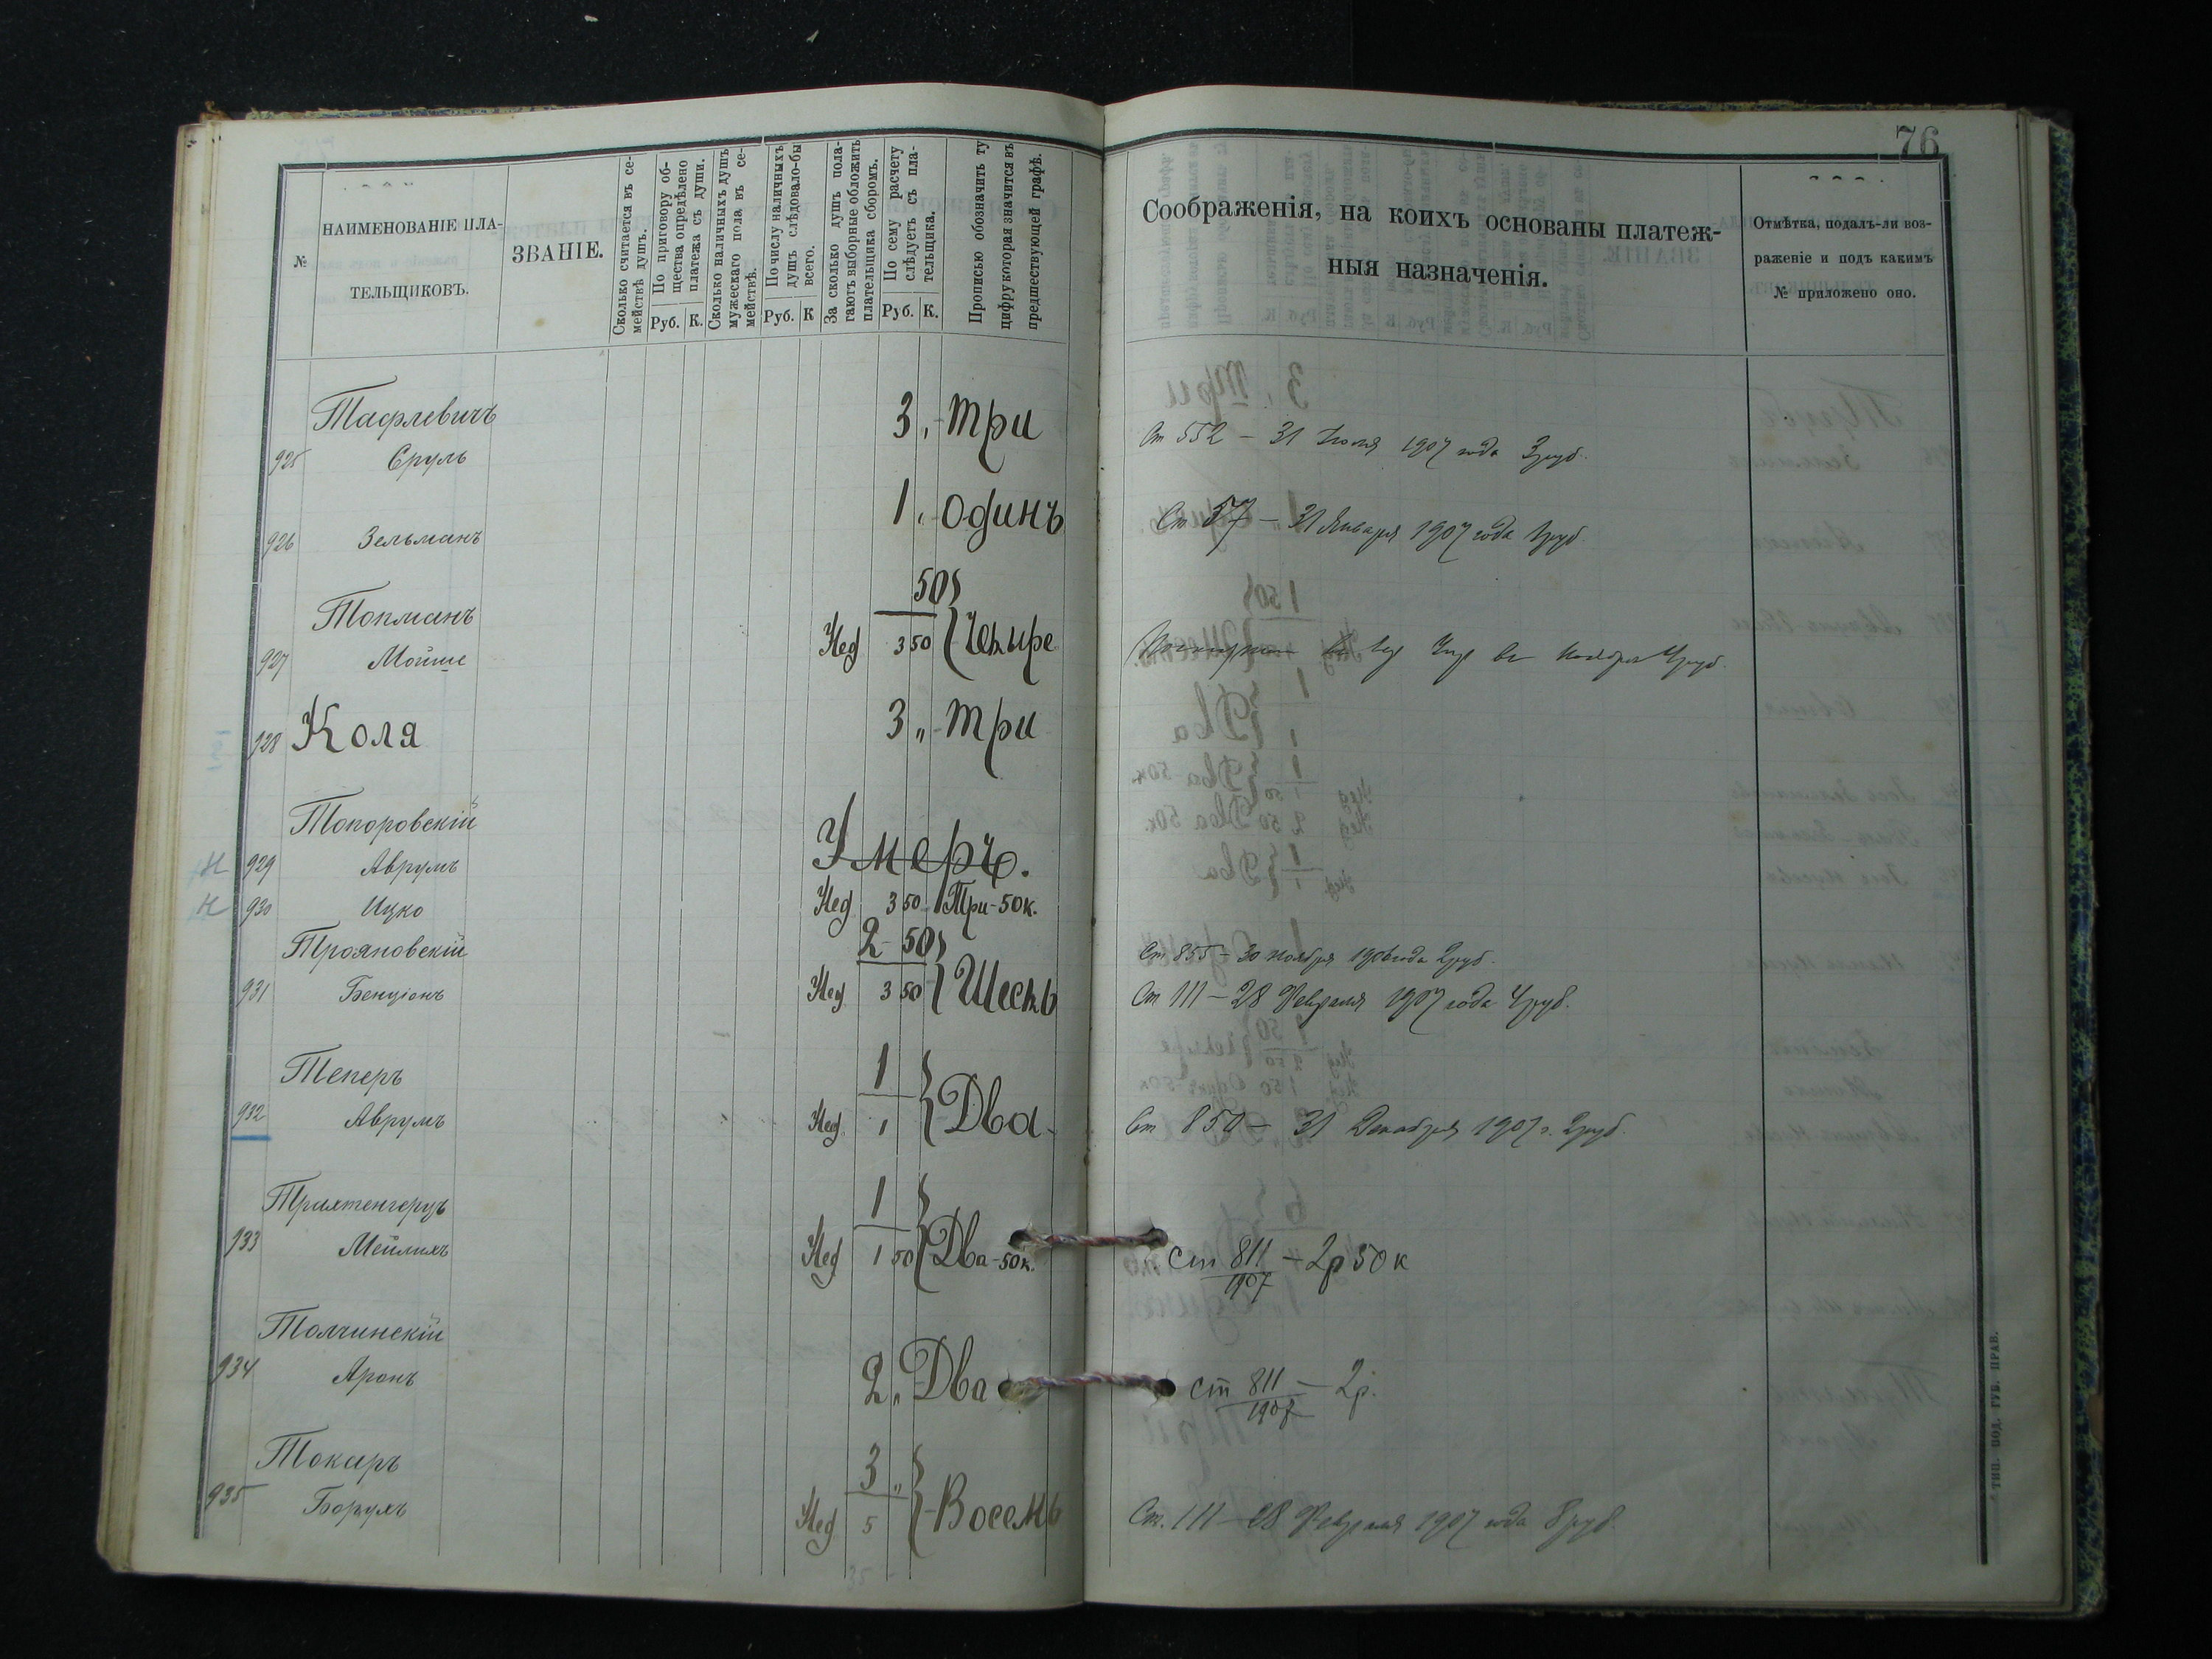 76
№
НАИМЕНОВАНІЕ ПЛА-
ТЕЛЬЩИКОВЪ.
ЗВАНІЕ.
Сколько считается въ се-
мействѣ душъ.
По приговору об-
щества опредѣлено
платежа съ души.
Руб. К.
Сколько наличныхъ душъ
мужескаго пола въ се-
мействѣ.
По числу наличныхъ
душъ слѣдовало-бы
всего.
Руб. К
За сколько душъ пола-
гаютъ выборные обложить
плательщика сборомъ.
По сему расчету
слѣдуетъ съ пла-
тельщика.
Руб. К.
Прописью обозначить ту
цифру которая значится въ
предшествующей графѣ.
Соображенія, на коихъ основаны платеж-
ныя назначенія.
Отмѣтка, подалъ-ли воз-
раженіе и подъ какимъ
№ приложено оно.
Тафлевичъ
925 Сруль 3 „ Три Ст 552 – 31 Іюля 1907 года 3 руб.
926 Зельманъ 1 „ Одинъ Ст 57 – 31 Января 1907 года 1 руб.
Топманъ 50
927 Мойше Нед 3 50 Четыре Ноября 4 руб.
928 Коля 3 „ Три
Топоровскій
Н 929 Аврумъ Умеръ.
Н 930 Ицко Нед 3 50 Три - 50 к.
Трояновскій 2 - 50 Ст 855 – 30 Ноября 1906 года 2 руб.
931 Бенціонъ Нед 3 50 Шесть Ст 111 – 28 Февраля 1907 года 4 руб.
Теперъ 1
932 Аврумъ Нед 1 Два Ст 850 – 31 Декабря 1907 г. 2 руб.
1
933 Мейлихъ Нед 1 50 Два - 50 к. Ст 811/1907 – 2 р 50 к
Толчинскій
934 Аронъ 2 „ Два ст 811/1907 – 2 р.
Токарь 3 „
935 Борухъ Нед 5 Восемь Ст. 111 – 28 Февраля 1907 года 8 руб.
35
ТИП. ПОД. ГУБ. ПРАВ.